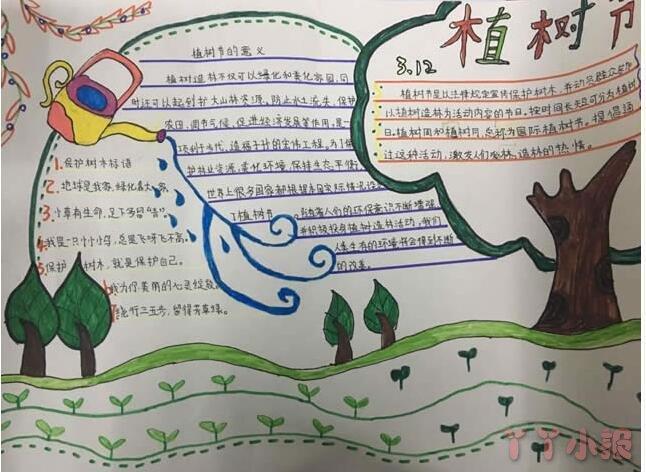 植树节
3.12
植树节是以法律规定宣传保护树木,并动员群众参加
以植树造林为活动内容的节日。按时间长短可分为植树
日、植树周和植树月,总称为国际植树节。提倡通
过这种活动,激发人们爱林、造林的热情。
植树节的意义
植树造林不仅可以绿化和美化家园,同
时还可以起到扩大山林资源、防止水土流失、保护
农田、调节气候、促进经济发展等作用,是一
项利于当代、造福子孙的宏伟工程。为了保
护林业资源,美化环境,保持生态平衡
世界上很多国家都根据本国实际情况设
了植树节。随着人们的环保意识不断增强
并积极投身植树造林活动,我们
人类生存的环境将会得到不断
的改善。
1.保护树木标语
2.地球是我家,绿化靠大家。
3.小草有生命,足下多留"青"。
4.我是一只小小鸟,总是飞呀飞不高。
5.保护树木,就是保护自己。
6.我为你美丽的心灵绽放。
7.绕行三五步,留得芳草绿。
丫丫小报